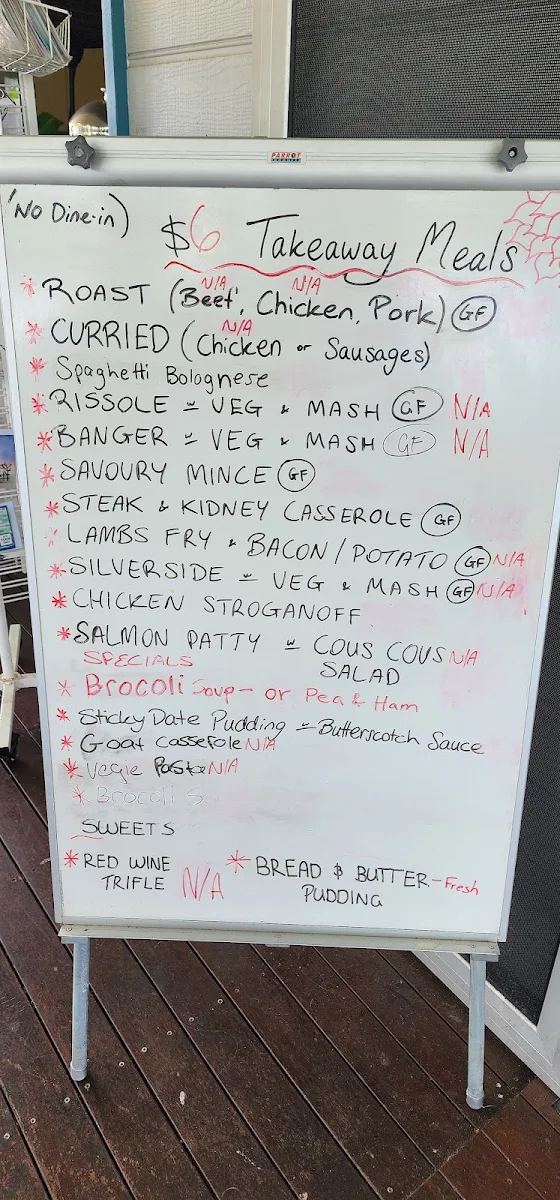 PARROT
(No Dine-in)
$6 Takeaway Meals
N/A N/A
* ROAST (Beef, Chicken, Pork) GF
N/A
* CURRIED (Chicken or Sausages)
* Spaghetti Bolognese
* RISSOLE w VEG & MASH GF N/A
* BANGER w VEG & MASH GF N/A
* SAVOURY MINCE GF
* STEAK & KIDNEY CASSEROLE GF
* LAMBS FRY & BACON/POTATO GF N/A
* SILVERSIDE w VEG & MASH GF N/A
* CHICKEN STROGANOFF
* SALMON PATTY w COUS COUS N/A
SALAD
SPECIALS
* Brocoli Soup - or Pea & Ham
* Sticky Date Pudding w Butterscotch Sauce
* Goat Casserole N/A
* Vegie Pasta N/A
* Brocoli S
SWEETS
* RED WINE TRIFLE N/A
* BREAD & BUTTER - Fresh
PUDDING